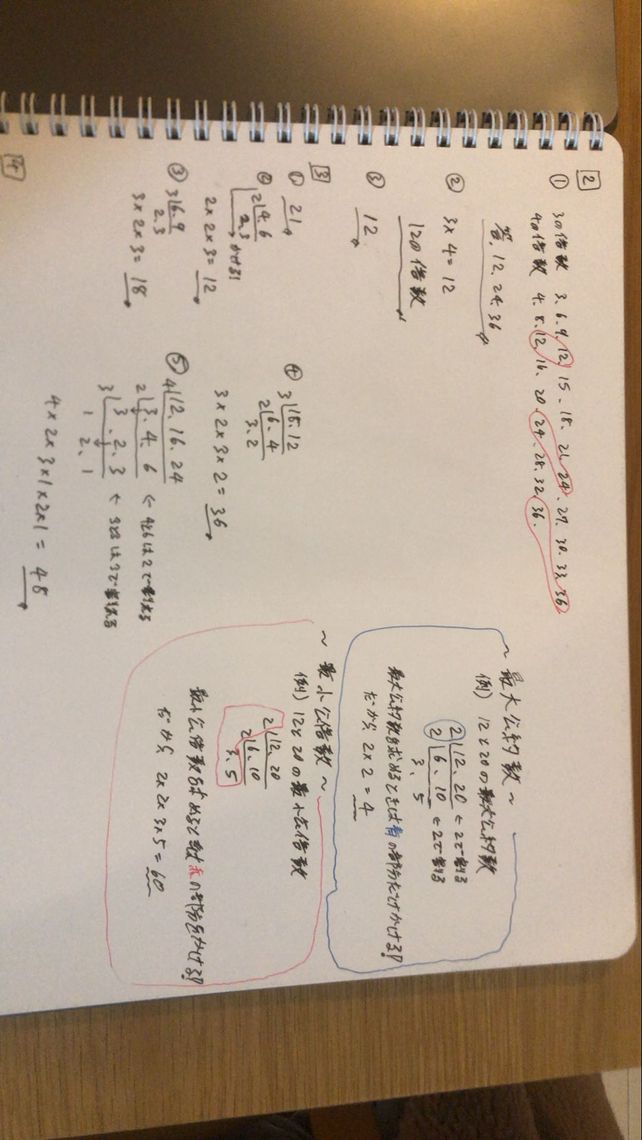 2
① 3の倍数 3. 6. 9. 12. 15. 18. 21. 24. 27. 30. 33. 36
4の倍数 4. 8. 12. 16. 20. 24. 28. 32. 36.
答. 12. 24. 36
② 3×4=12
12の倍数
③ 12
3
① 21
② 2 4. 6
2. 3 かける!
2×2×3=12
③ 3 6. 9
2. 3
3×2×3=18
④ 3 18. 12
2 6. 4
3. 2
3×2×3×2=36
⑤ 4 12. 16. 24
2 3. 4. 6 ← 4と6は2で割れる
3 3. 2. 3 ← 3と3は3で割れる
1 2. 1
4×2×3×1×2×1=48
4
~最大公約数~
例) 12と20の最大公約数
2 12. 20 ← 2で割る
2 6. 10 ← 2で割る
3. 5
最大公約数を求めるときは青の部分だけかける!
だから 2×2=4
~最小公倍数~
例) 12と20の最小公倍数
2 12. 20
2 6. 10
3. 5
最小公倍数を求めるときは赤の部分をかける!
だから 2×2×3×5=60